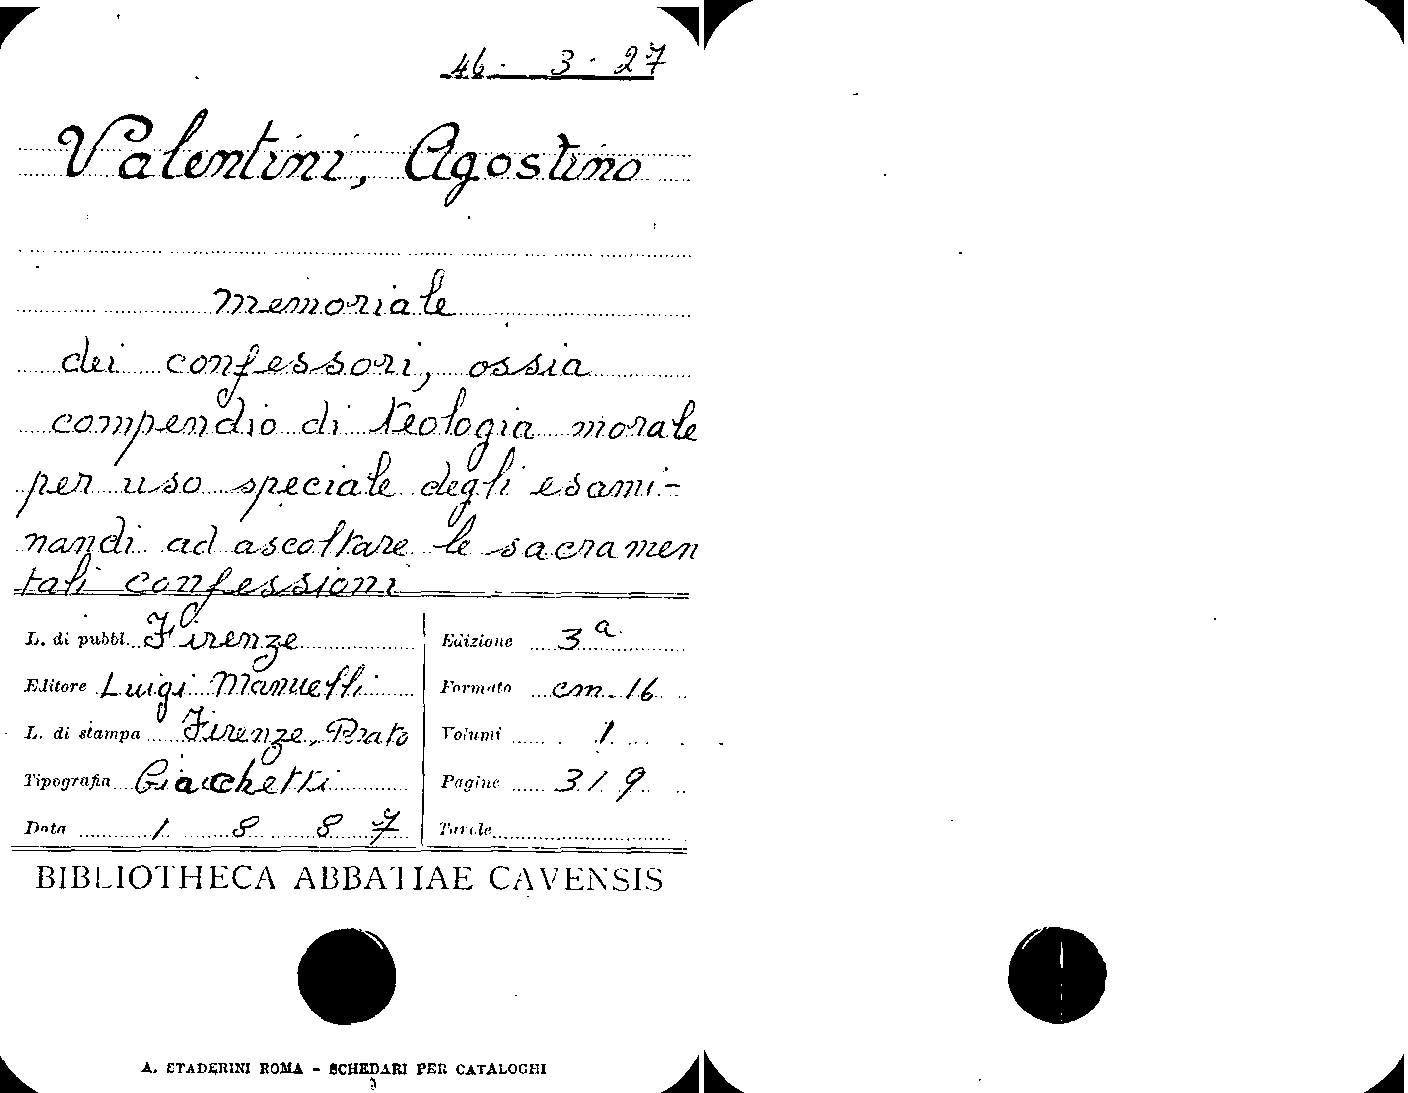 46 - 3 - 27
Valentini, Agostino
Memoriale
dei confessori, ossia
compendio di teologia morale
per uso speciale degli esami-
nandi ad ascoltare le sacramen
tali confessioni
L. di pubbl. Firenze
Editore Luigi Manuelli
L. di stampa Firenze, Prato
Tipografia Giacchetti
Data 1887
Edizione 3a
Formato cm. 16
Volumi 1
Pagine 319
Tavole
BIBLIOTHECA ABBATIAE CAVENSIS
A. STADERINI ROMA - SCHEDARI PER CATALOGHI